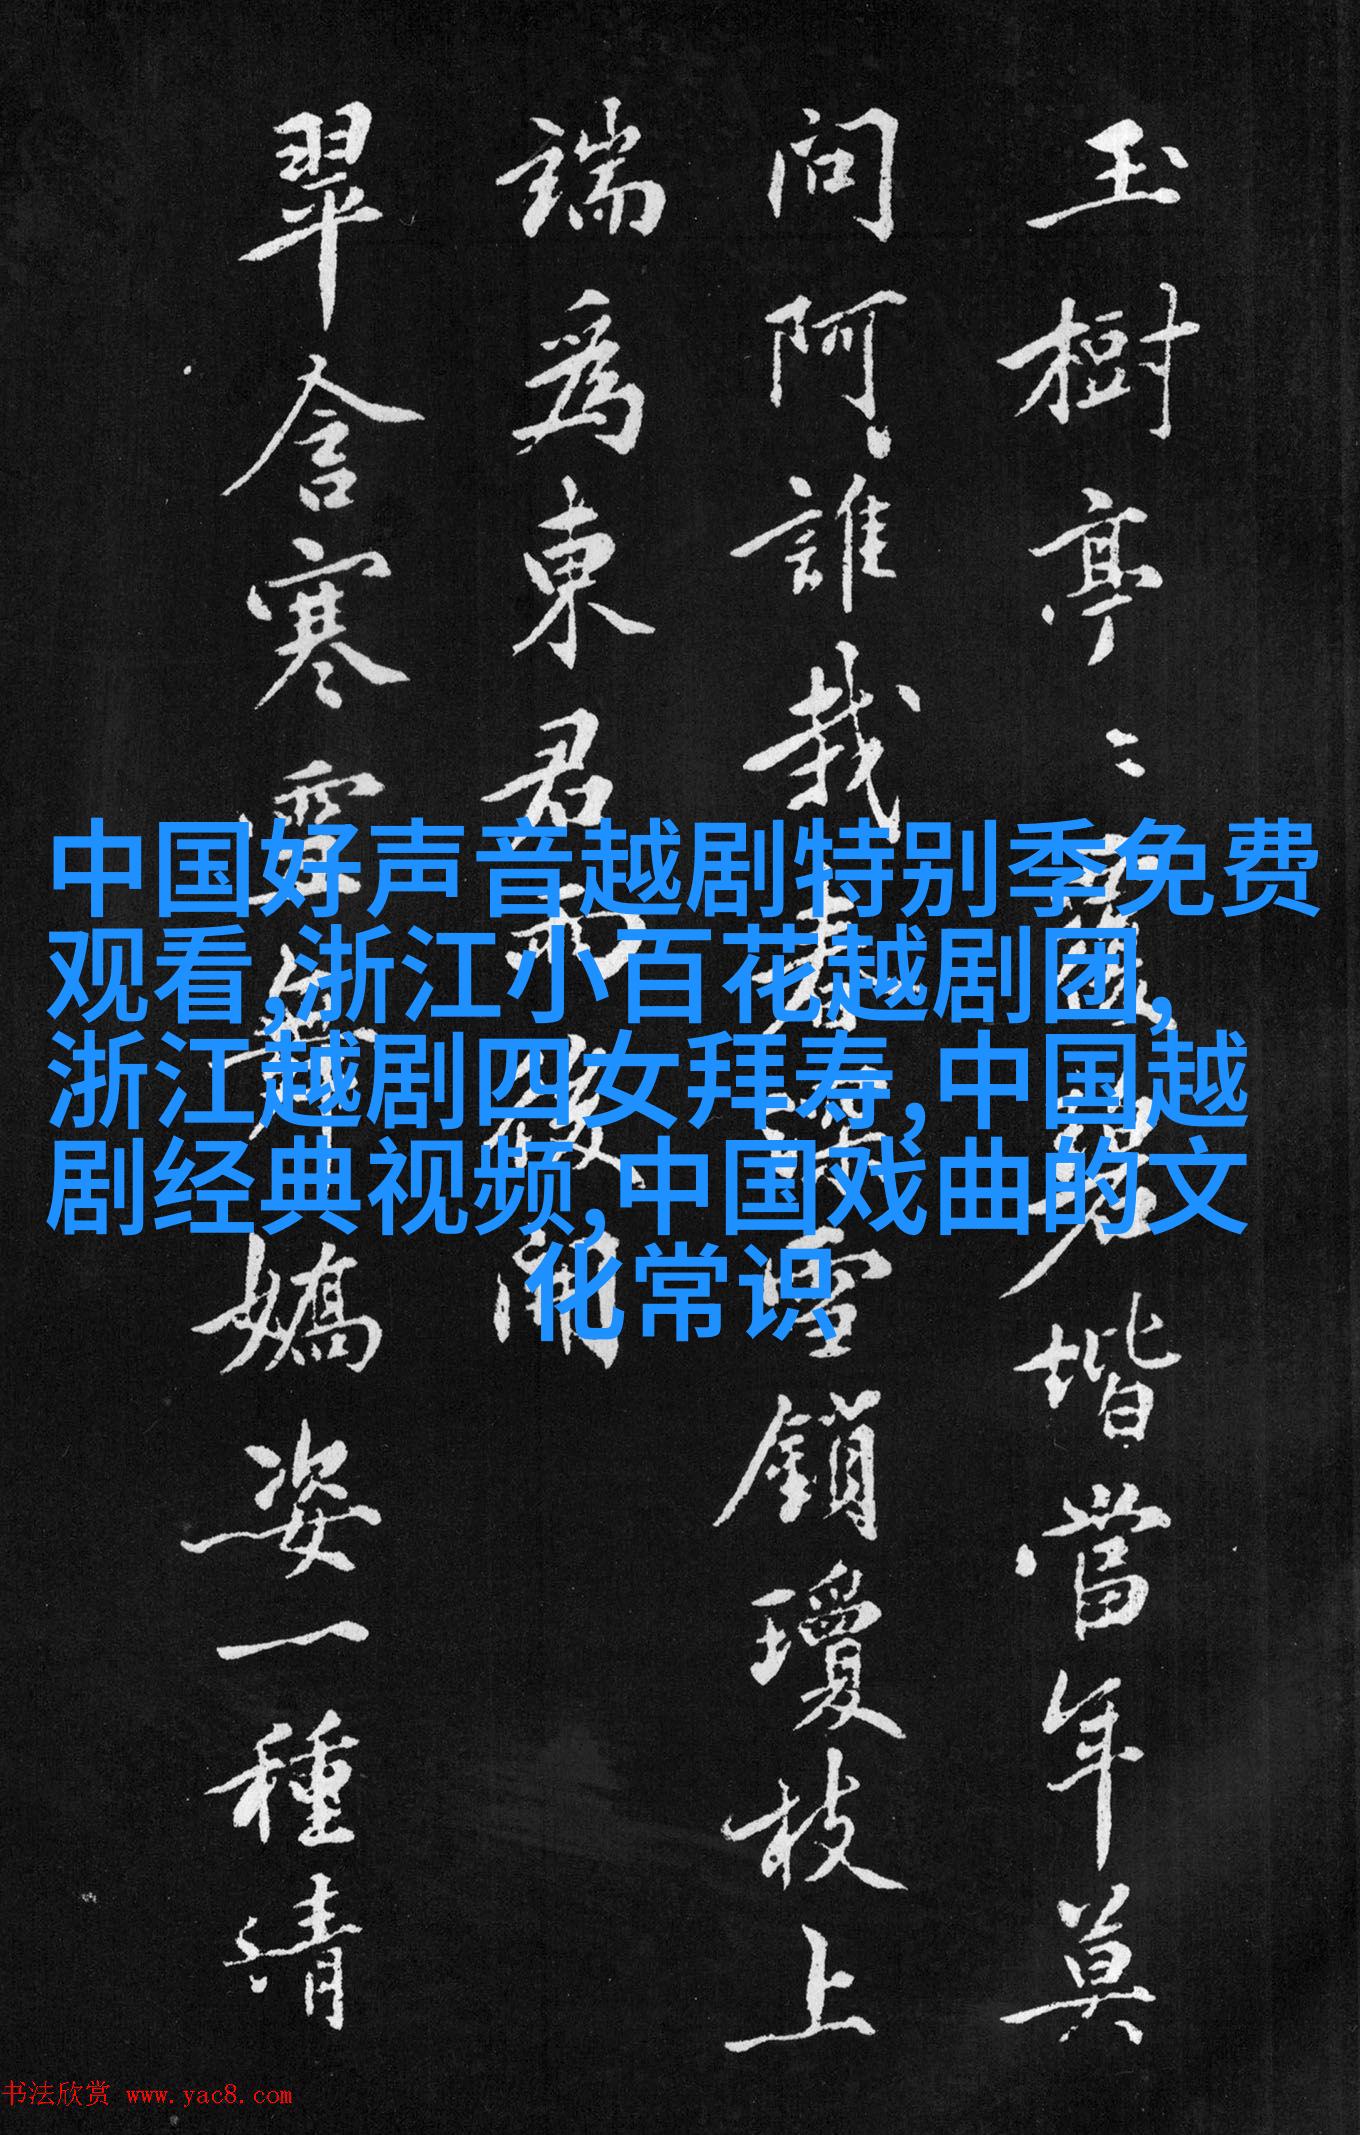 玉樹亭〻
堦當年莫
問阿誰栽
雪鎖瓊枝上
端爲東君
翠含寒
嬌姿一種清
中国好声音越剧特别季免费
观看,浙江小百花越剧团,
浙江越剧四女拜寿,中国越
剧经典视频,中国戏曲的文
化常识
书法欣赏 www.yac8.com